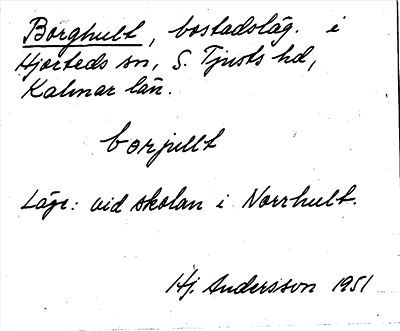 Borghult, bostadsläg. i
Hjorteds sn, S. Tjusts hd,
Kalmar län.
borjullt
Läge: vid skolan i Norrhult.
Hj. Andersson 1951